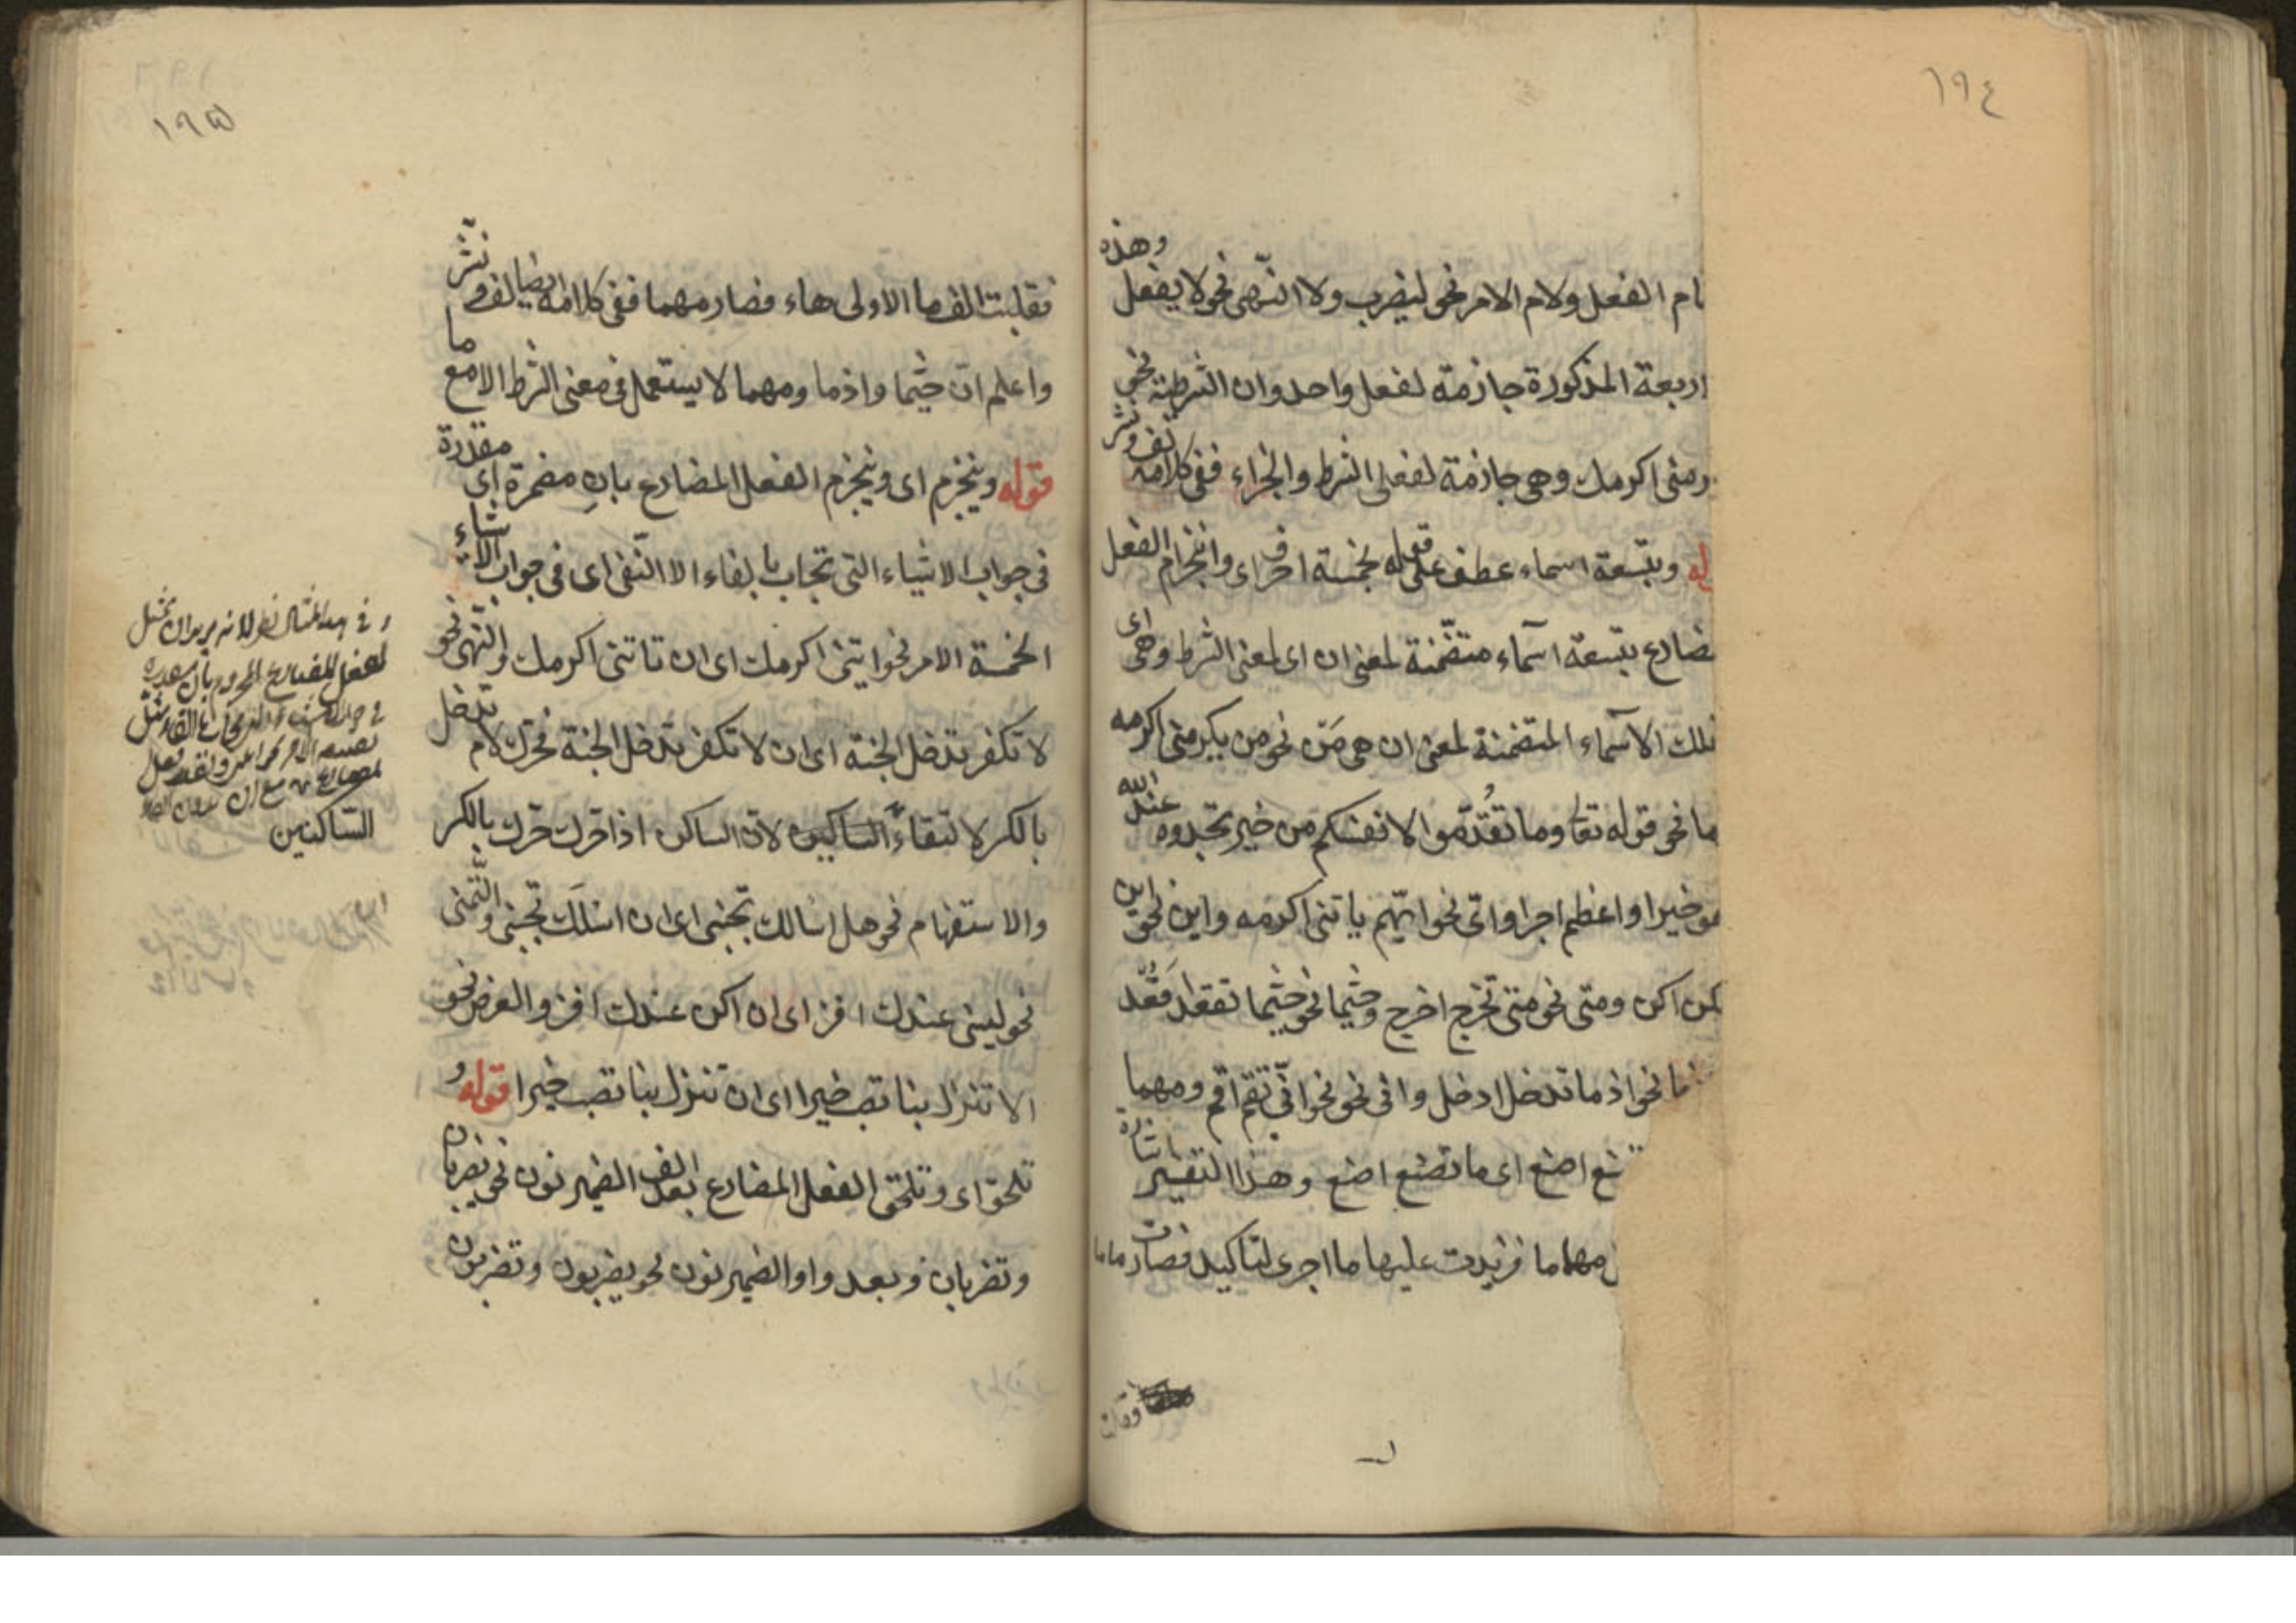 ١٩٤
ام الفعل ولام الامر نحو ليضرب ولا النّهى نحو لا يفعل وهذه
اربعة المذكورة جازمة لفعل واحد وان الشرطية نحو
رمنى اكرمك وهى جازمة لفعلى الشرط والجزاء ففى كلامه لف ونشر
له وبتسعة اسماء عطف على قوله بخمسة احرف اى وانجزام الفعل
ضارع بتسعة اسماء متضمّنة لمعنى ان اى لمعنى الشرط وهى اى
تلك الاسماء المتضمنة لمعنى ان هى مَن نحو من يكرمنى اكرمه
ما نحو قوله تعا وما تُقدّموا لانفسكم من خير تجدوه عند الله
هو خيرا واعظم اجرا واىّ نحو ايّهم ياتنى اكرمه واين نحو اين
كن اكن ومتى نحو متى تخرج اخرج وحيثما نحو حيثما تقعد اقعد
ما نحو اذ ما تدخل ادخل وانى نحو نحو انّى تقم اقم ومهما
نع اصنع اى ما تصنع اصنع وهذا التفسير
مهما ما فزيدت عليها ما اجرى لتاكيد فصارت ماما
فقلبت
١٩٥
فقلبت الف ما الاولى هاء فصار مهما ففى كلامه ايضا لف ونشر
واعلم ان حيثما واذما ومهما لا يستعمل فى معنى الشرط الا مع ما
قوله وينجزم اى وينجزم الفعل المضارع بان مضمرة اى مقدرة
فى جواب الاشياء التى تجاب بالفاء الا النّفى اى فى جواب الاشياء
الخمسة الامر نحو ايتنى اكرمك اى ان تاتنى اكرمك والنّهى نحو
لا تكفر تدخل الجنة اى ان لا تكفر تدخل الجنة فحرّك لام تدخل
بالكسر لالتقاء الساكنين لان الساكن اذا حرّك حرّك بالكسر
والاستفهام نحو هل اسالك تجبنى اى ان اسلك تجبنى والتّمنى
نحو ليتنى عندك افز اى ان اكن عندك افز والعرض نحو
الا تنزل بنا تصب خيرا اى ان تنزل بنا تصب خيرا قوله و
تلحق اى وتلحق الفعل المضارع بعد الف الضمير نون نحو يضربان
وتضربان وبعد واو الضمير نون نحو يضربون وتضربون
الساكنين